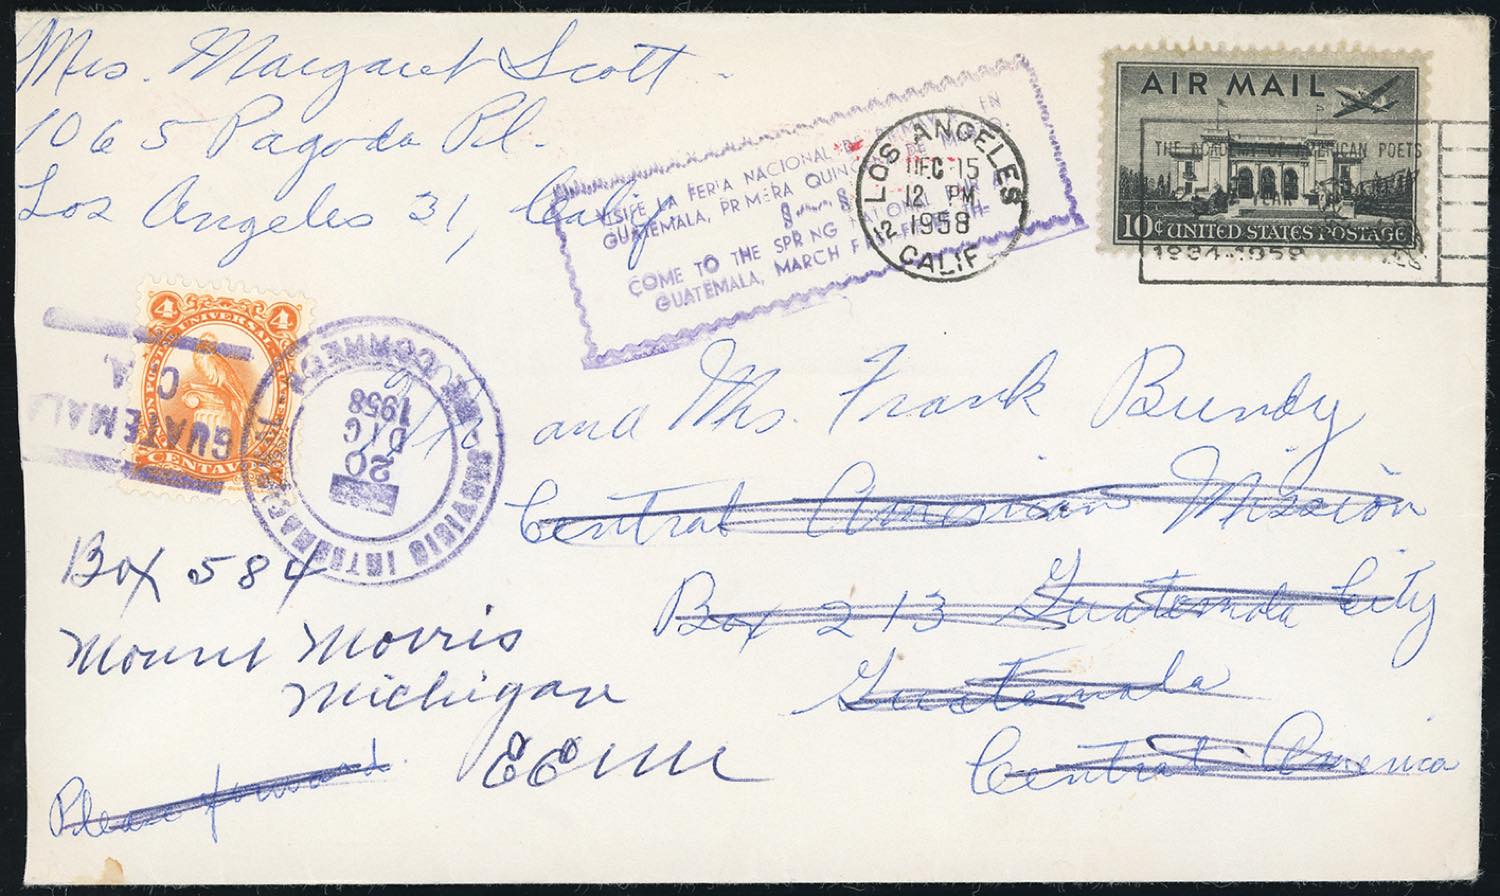 Mrs. Margaret Scott
1065 Pagoda Pl.
Los Angeles 31, Calif
VISITE LA FERIA NACIONAL DE
GUATEMALA, PRIMERA QUINC DE
COME TO THE SPRING NATIONAL FAIR
GUATEMALA, MARCH
LOS ANGELES
DEC 15
12 PM
1958
12 CALIF
AIR MAIL
THE ACADEMY OF AMERICAN POETS
YEAR
10¢ UNITED STATES POSTAGE
1934-1959
4 4
UNION POSTAL UNIVERSAL
CENTAVOS
GUATEMALA
C. A.
SERVICIO
20
DIC
1958
Mr. and Mrs. Frank Bundy
Central American Mission
Box 213 Guatemala City
Guatemala
Central America
Box 584
Mount Morris
Michigan
EEUU
Please forward